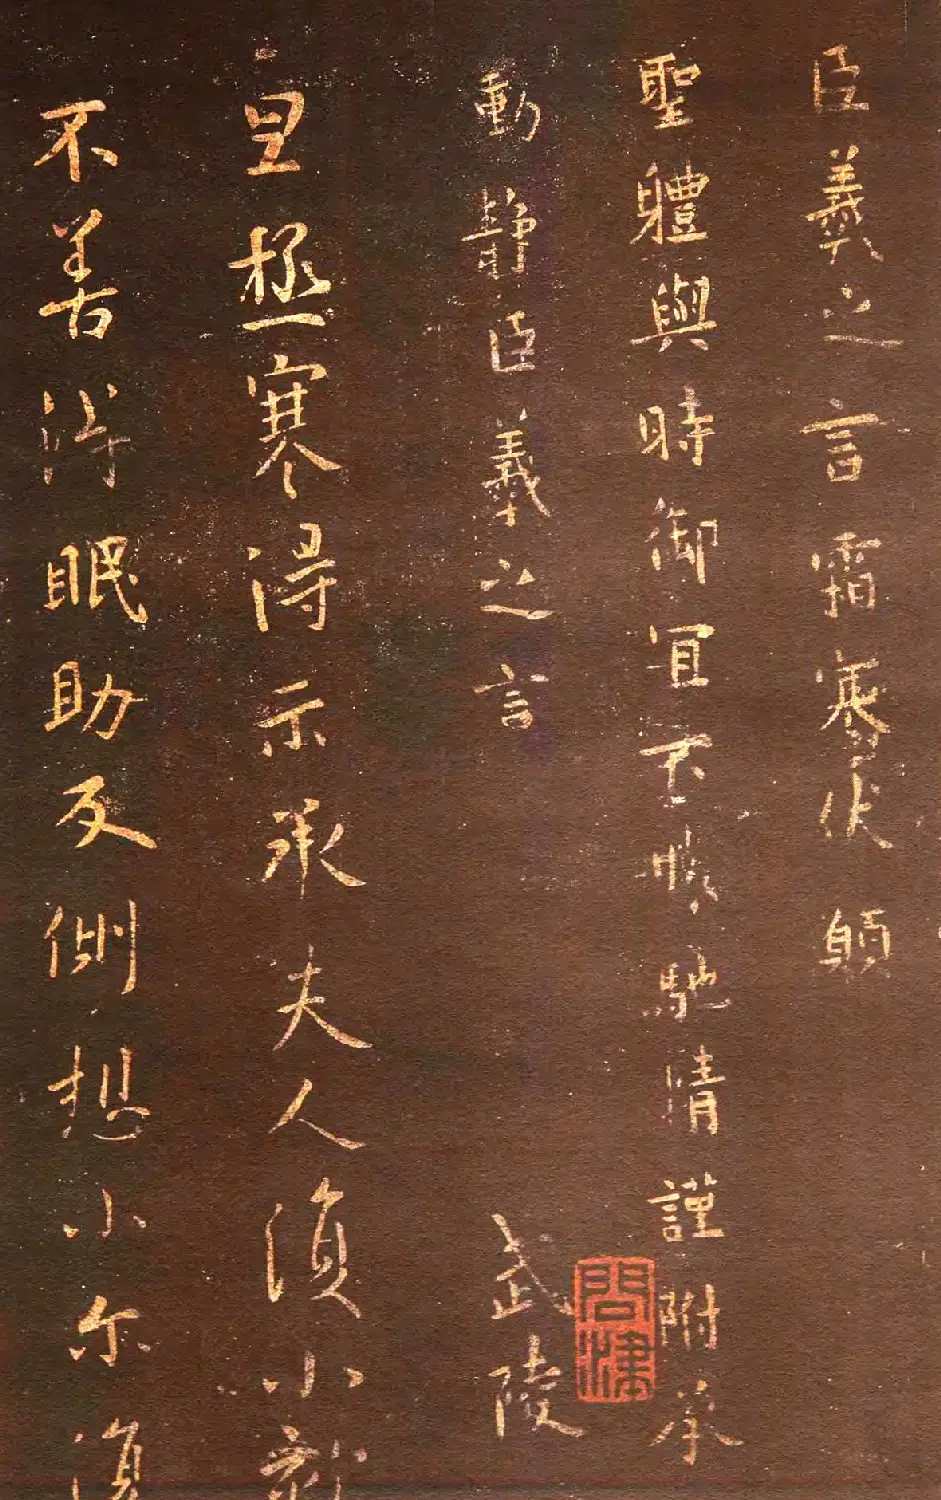 臣羲之言霜寒伏願
聖體與時御宜不勝馳情謹附承
動靜臣羲之言 武陵
旦極寒得示承夫人復小
不善得眠助反側想小尔復
問津